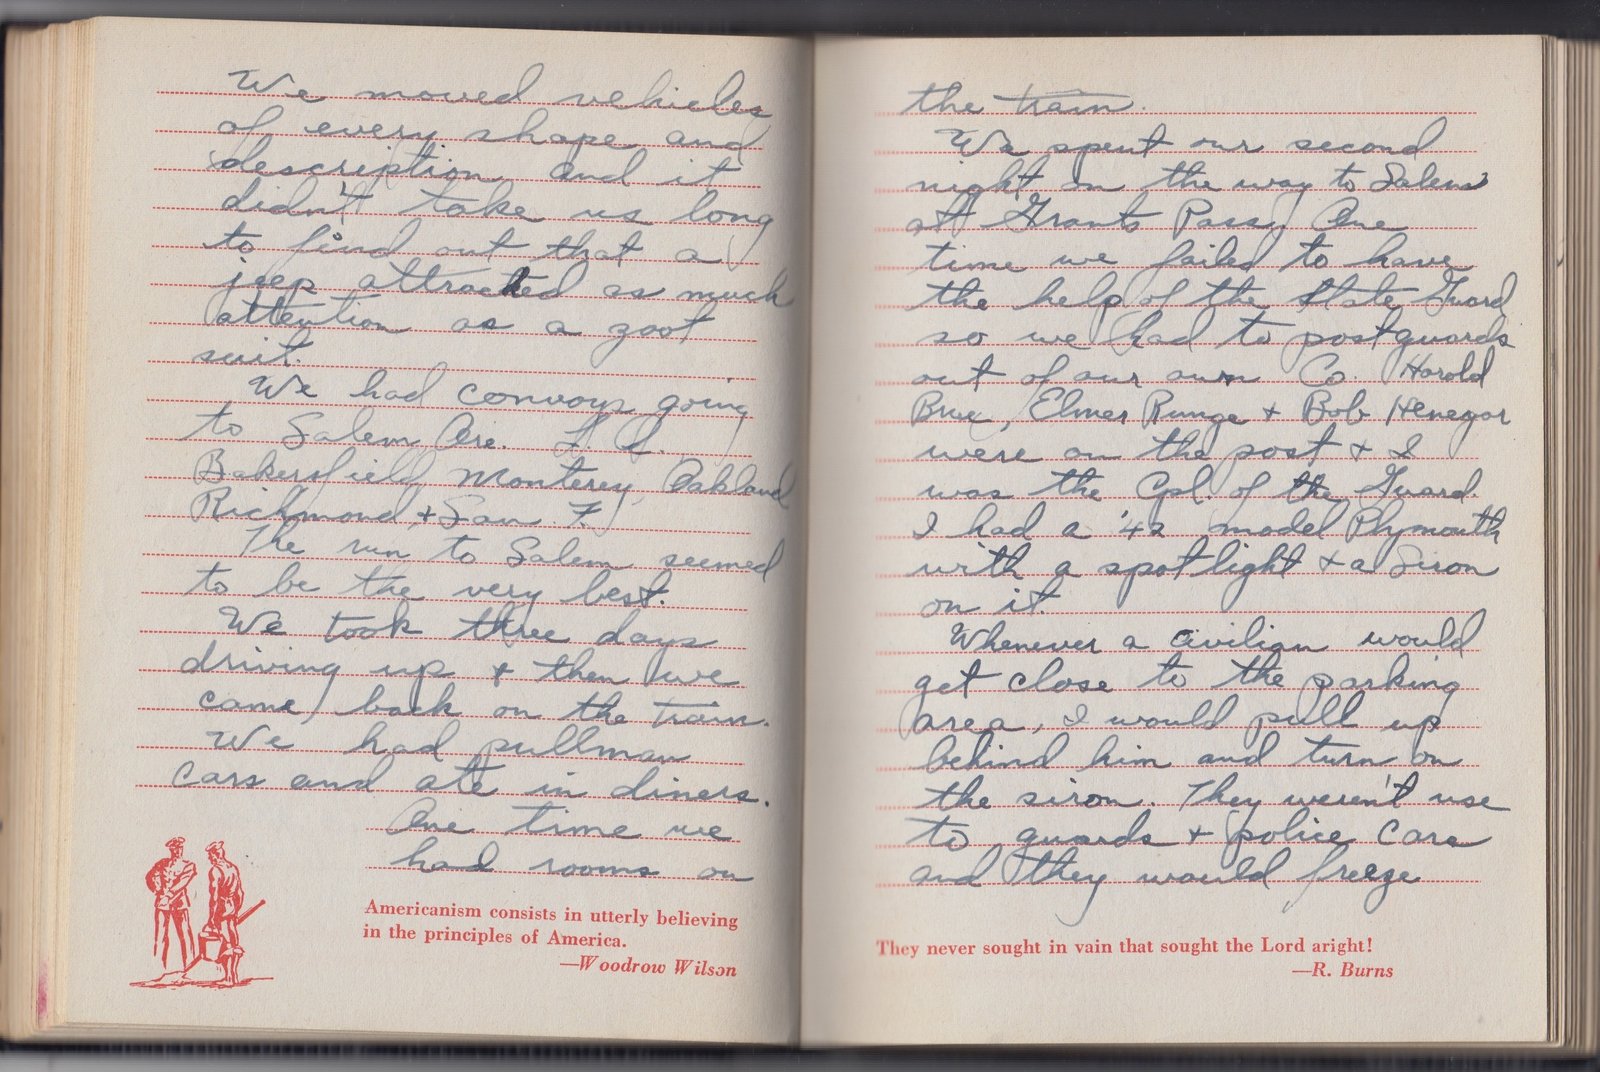 We moved vehicles
of every shape and
description and it
didn't take us long
to find out that a
jeep attracted as much
attention as a zoot
suit.
We had convoys going
to Salem Ore. L. A.
Bakersfield, Monterey, Oakland
Richmond, + San. F.
The run to Salem seemed
to be the very best.
We took three days
driving up + then we
came back on the train.
We had pullman
cars and ate in diners.
One time we
had rooms on
Americanism consists in utterly believing
in the principles of America.
—Woodrow Wilson
the train.
We spent our second
night on the way to Salem
at Grants Pass. One
time we failed to have
the help of the State Guard
so we had to post guards
out of our own Co. Harold
Brue, Elmer Runge + Bob Henegar
were on the post + I
was the Cpl. of the Guard.
I had a '42 model Plymouth
with a spotlight + a Siron
on it.
Whenever a civilian would
get close to the parking
area, I would pull up
behind him and turn on
the siron. They weren't use
to guards + police cars
and they would freeze
They never sought in vain that sought the Lord aright!
—R. Burns